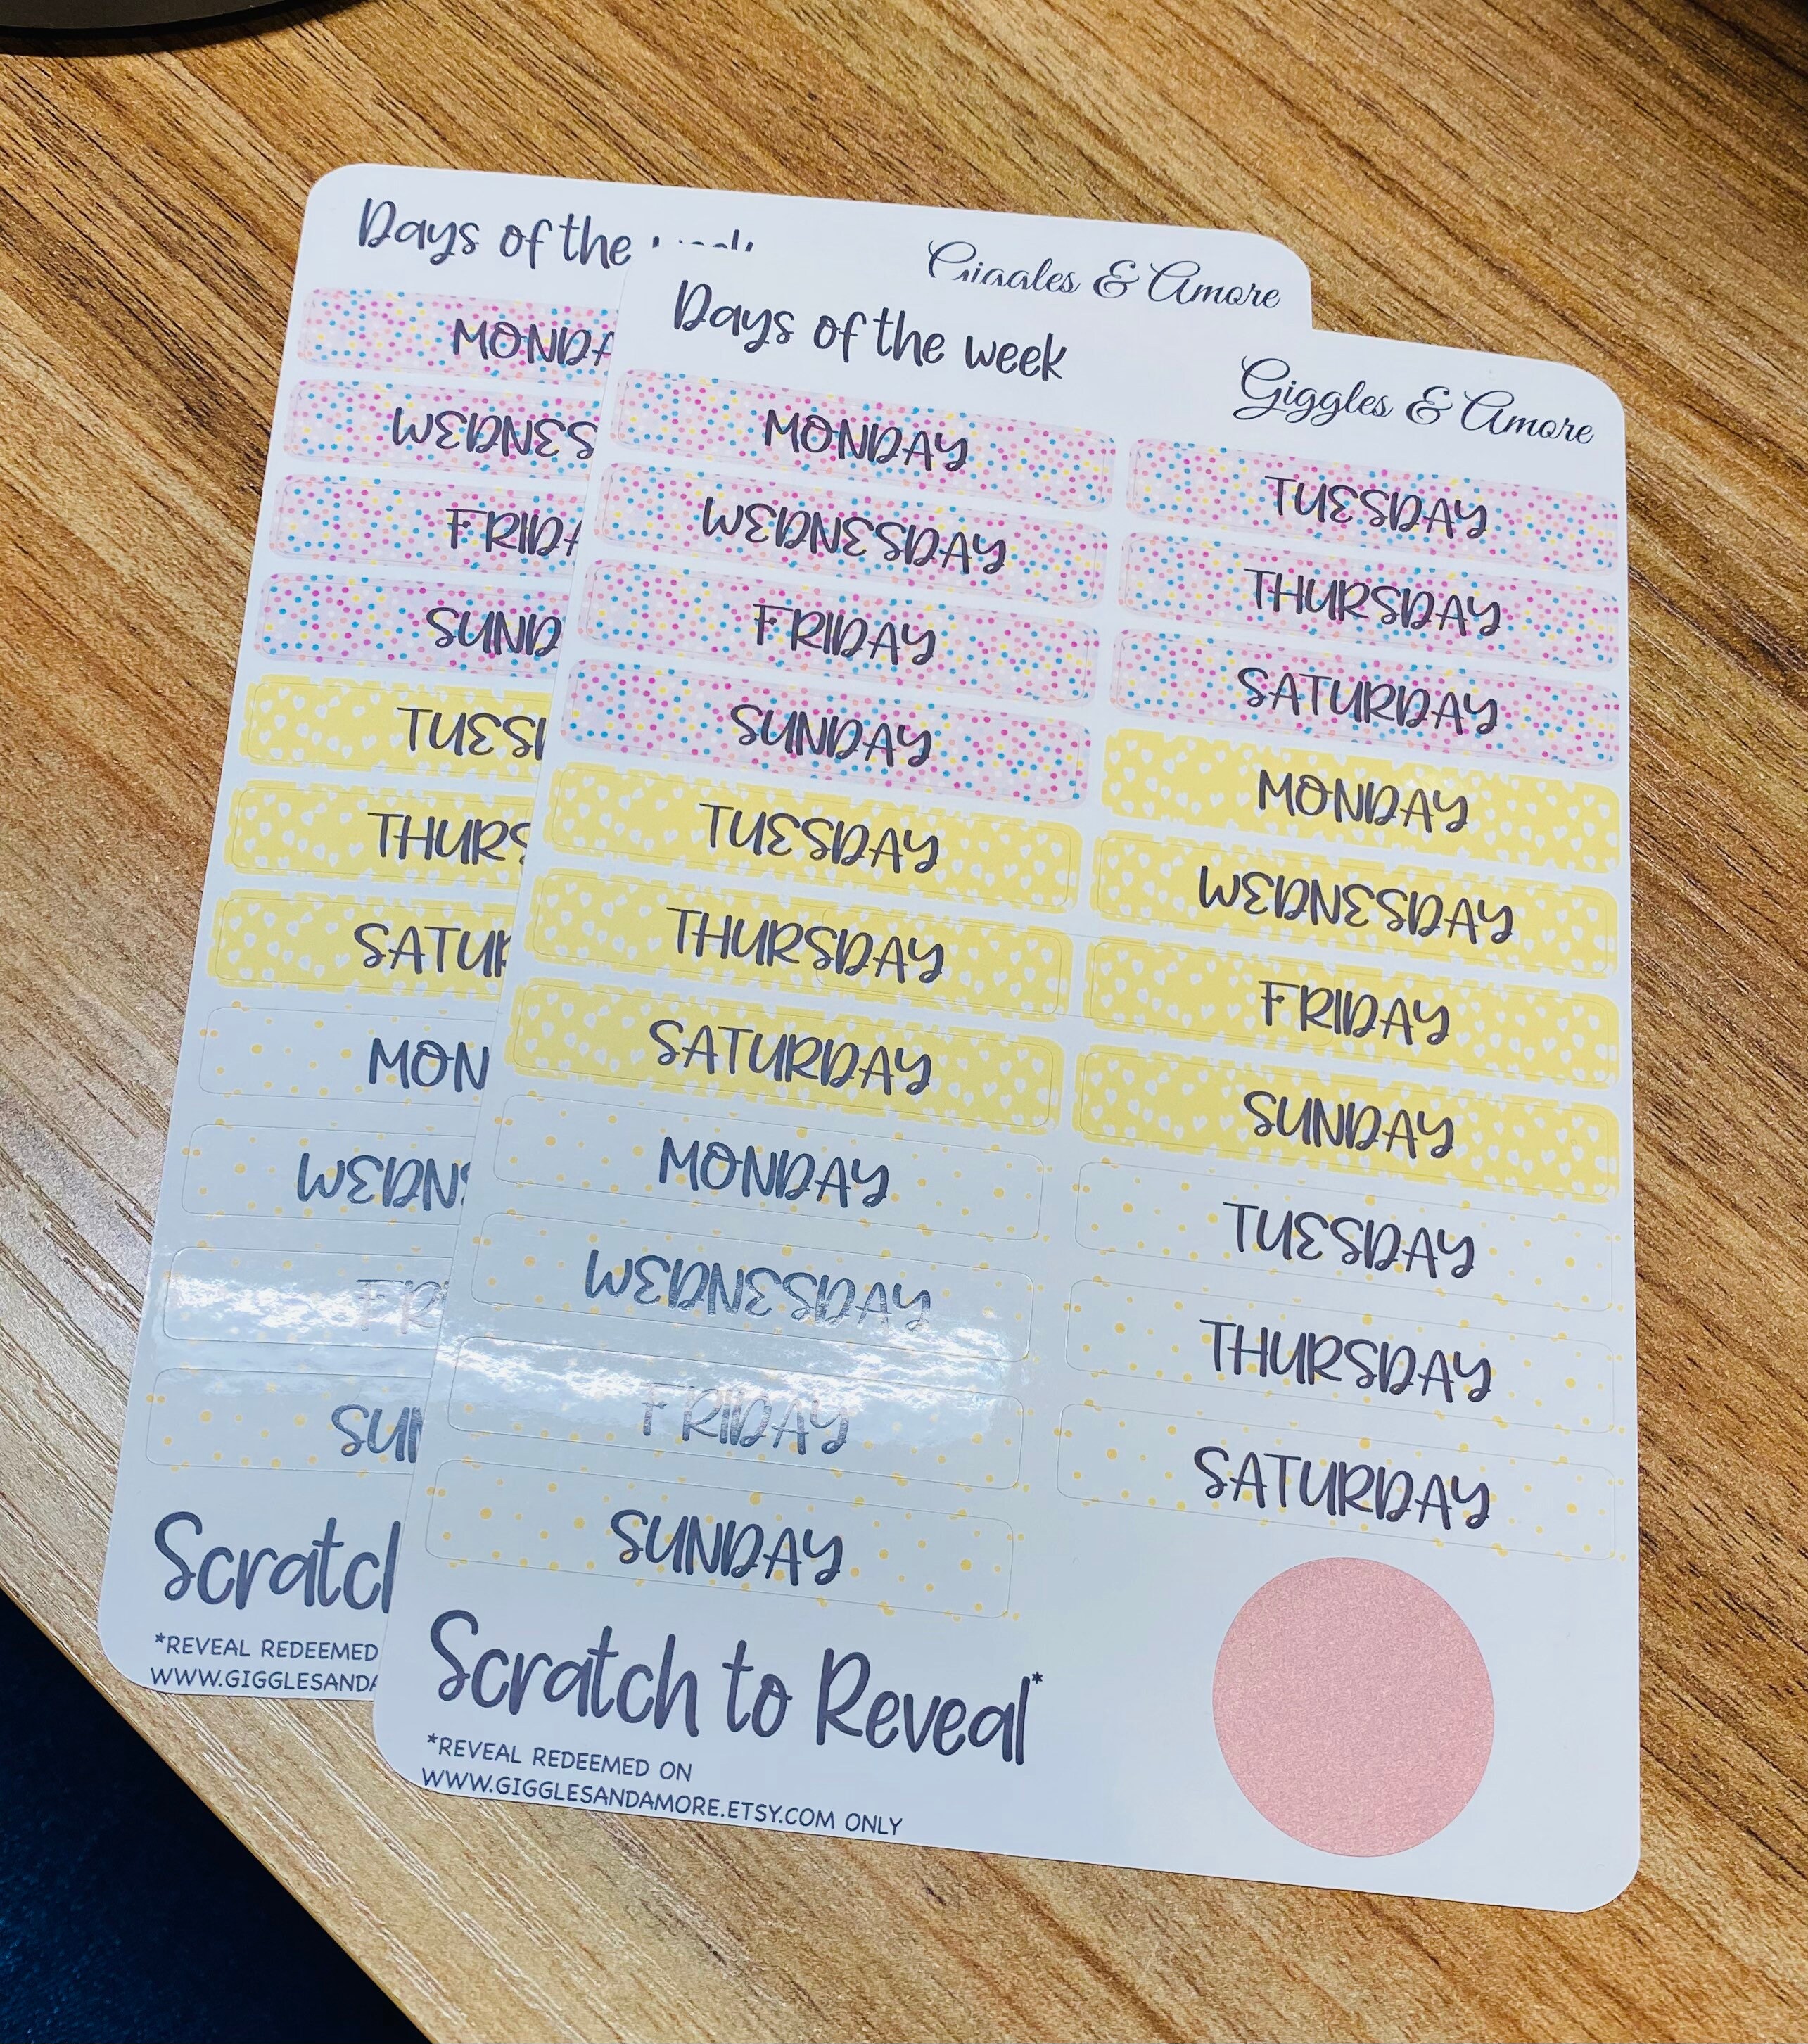 Days of the
Giggles & Amore
MONDA
WEDNES
FRIDA
SUND
TUES
THURS
SATUR
MON
WEDN
FR
SUN
Scratch
*REVEAL REDEEMED
WWW.GIGGLESANDA
Days of the week
Giggles & Amore
MONDAY
TUESDAY
WEDNESDAY
THURSDAY
FRIDAY
SATURDAY
SUNDAY
MONDAY
TUESDAY
WEDNESDAY
THURSDAY
FRIDAY
SATURDAY
SUNDAY
MONDAY
TUESDAY
WEDNESDAY
THURSDAY
FRIDAY
SATURDAY
SUNDAY
Scratch to Reveal*
*REVEAL REDEEMED ON
WWW.GIGGLESANDAMORE.ETSY.COM ONLY